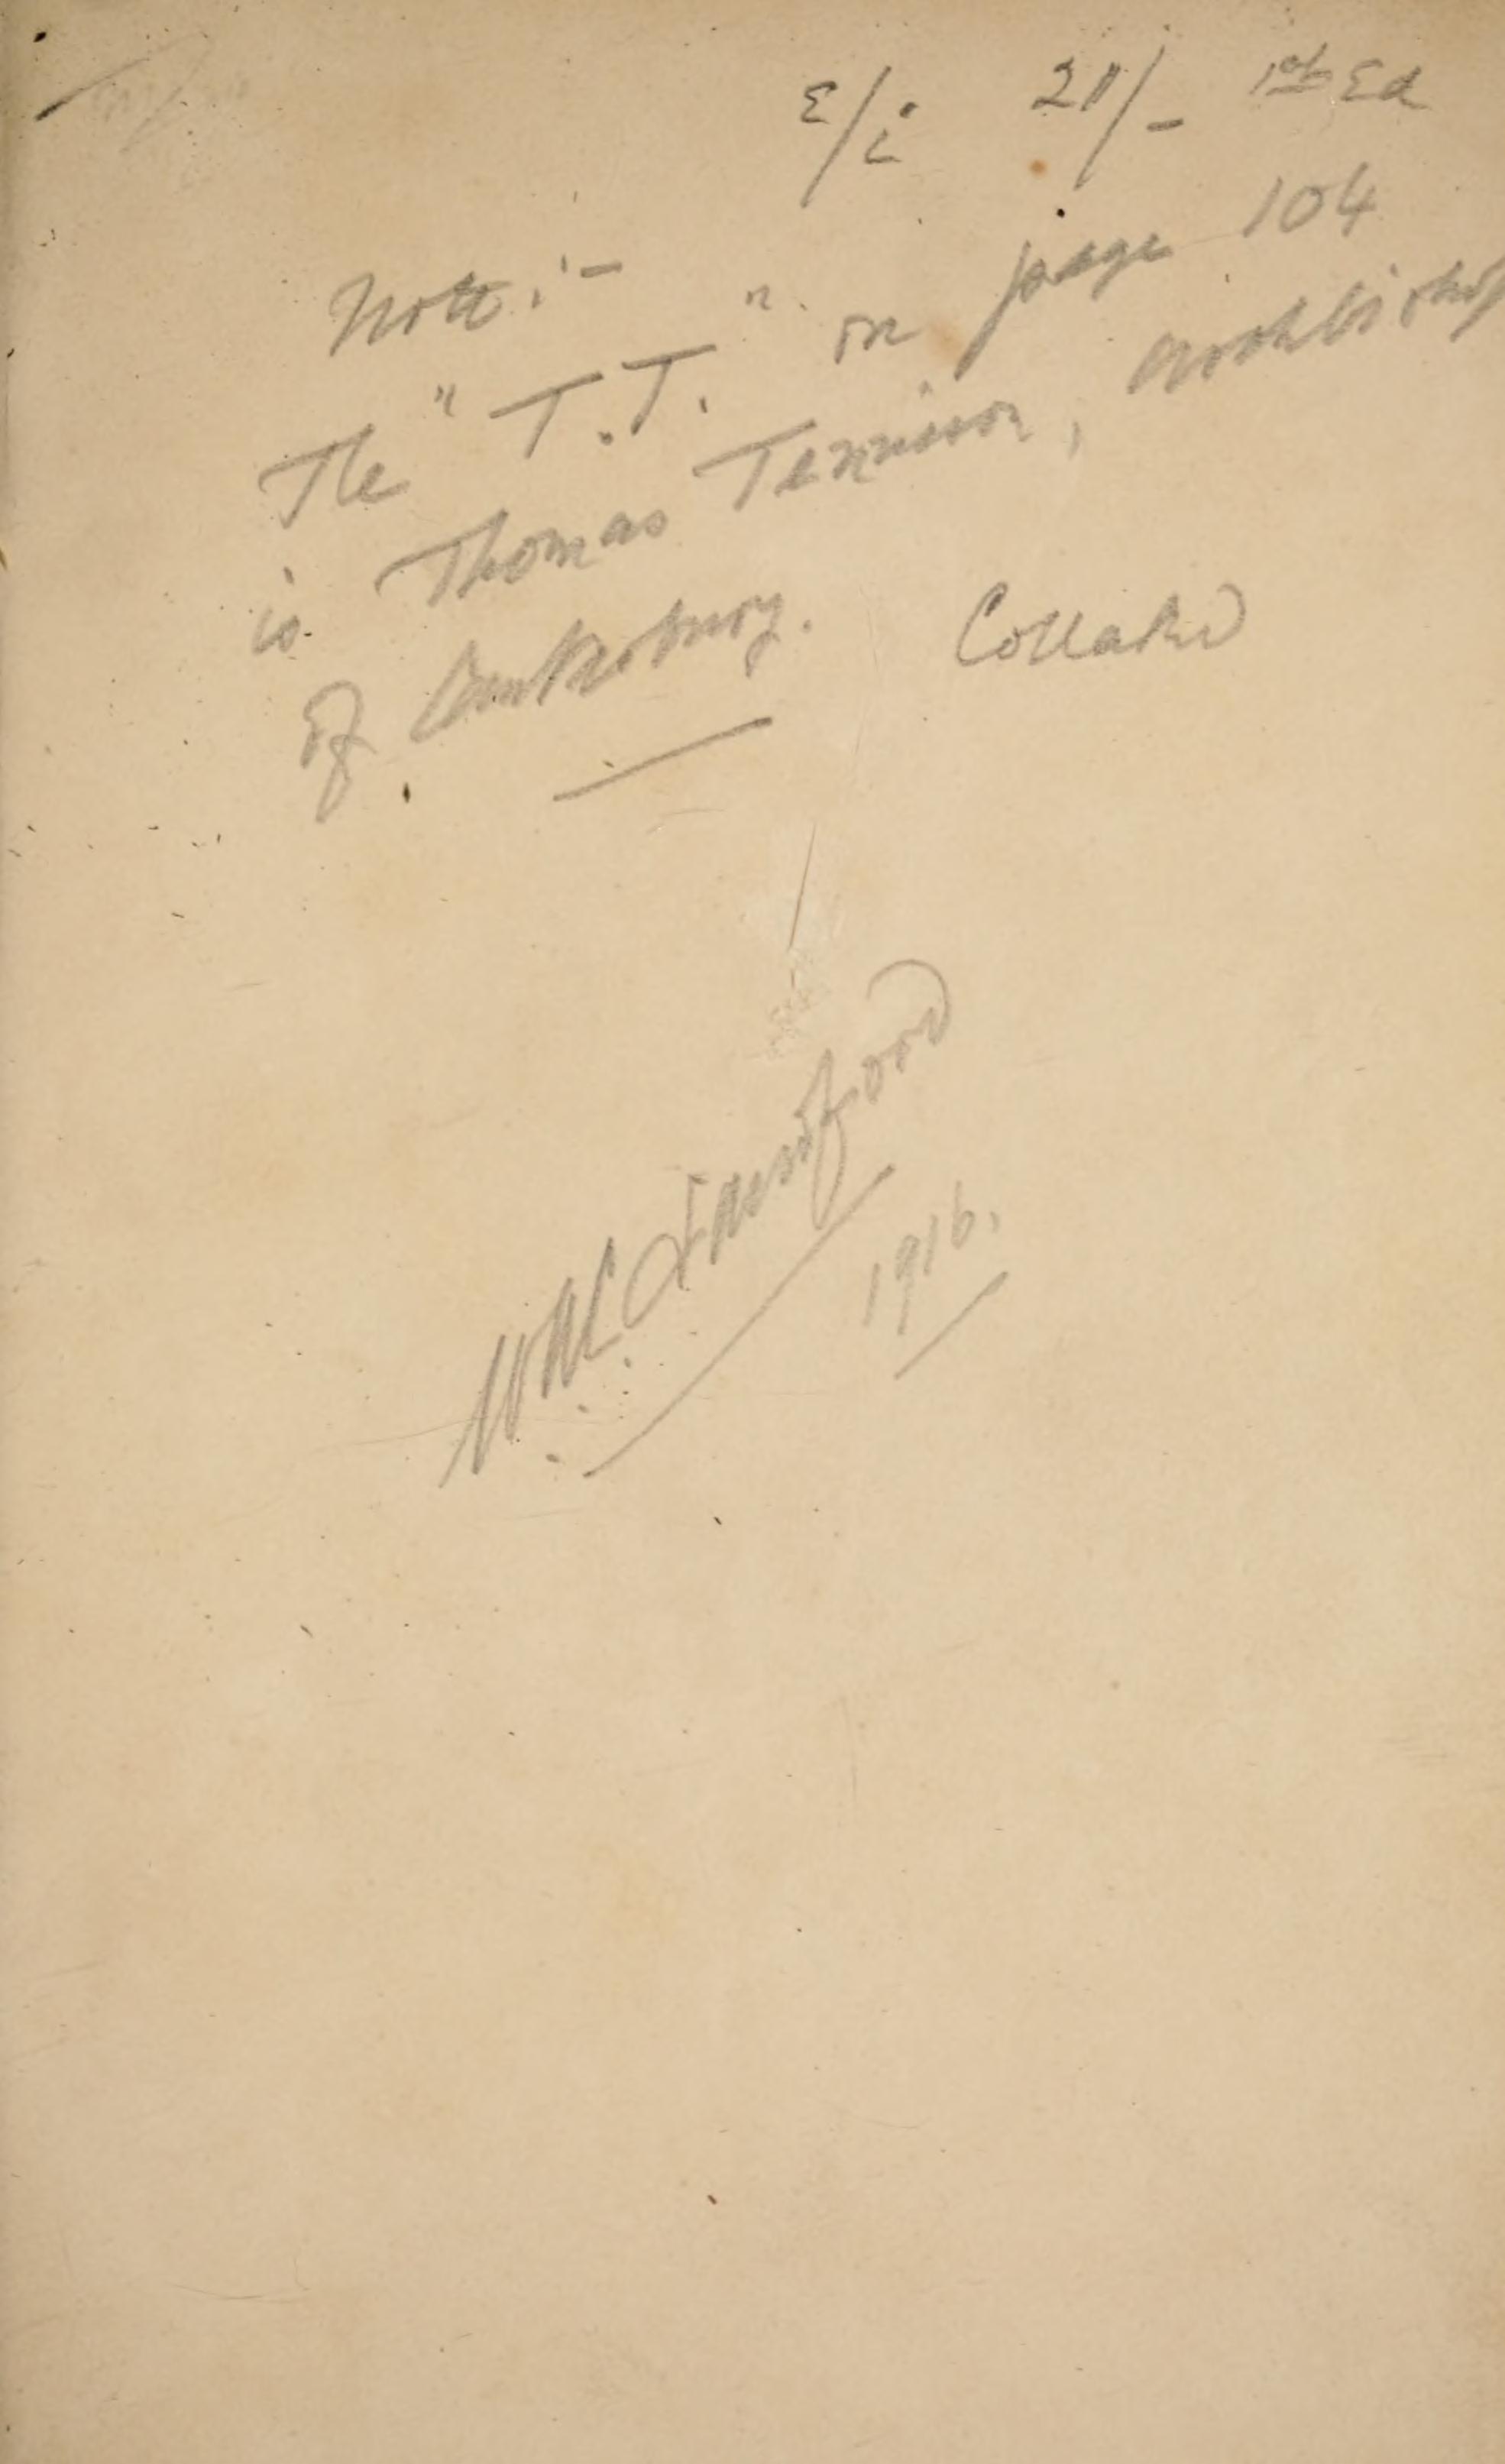 ε/i 21/- 1st Ed
Note :-
The "T.T." on page 104
is Thomas Tenison, Archbishop
of Canterbury.
Collated
1916.